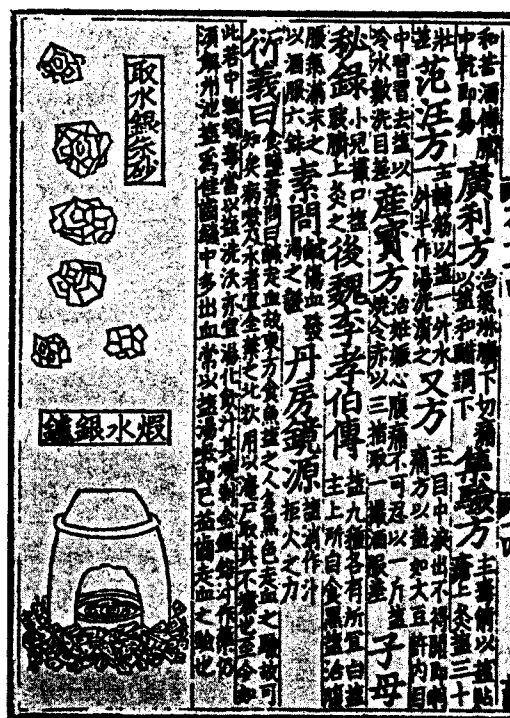 和苦酒傅臍
中乾即易
廣利方
治氣淋臍下切痛
以鹽和醋調下
集驗方
主毒箭以鹽貼
瘡上灸鹽三十
壯
差
范汪方
主轉筋以鹽一升水
一升半作湯洗漬之
又方
主目中淚出不得開即刺
痛方以鹽如大豆許內目
中習習去鹽以
冷水數洗目差
產寶方
治妊娠心腹痛不可忍以一斤鹽
燒令赤以三指取一撮酒服差
子母
秘録
小兒撮口鹽
豉臍上灸之
後魏李孝伯傳
鹽九種各有所宜白鹽
主上所自食黑鹽治腹
脹氣滿末之
以酒服六銖
素問
鹹傷血發
渴之證
丹房鏡源
鹽消作汁
拒火之力
衍義曰
食鹽素問曰鹹走血故東方食魚鹽之人多黑色走血之驗故可
知矣病嗽及水者宜全禁之北狄用以淹尸取其不壞也至今如
此若中蚯蚓毒當以鹽洗沃亦宜湯化飲汁其燒剝金銀熔汁作藥仍
須解州池鹽為佳齒縫中多出血常以鹽湯漱即已益齒走血之驗也
取水銀朱砂
煆水銀爐